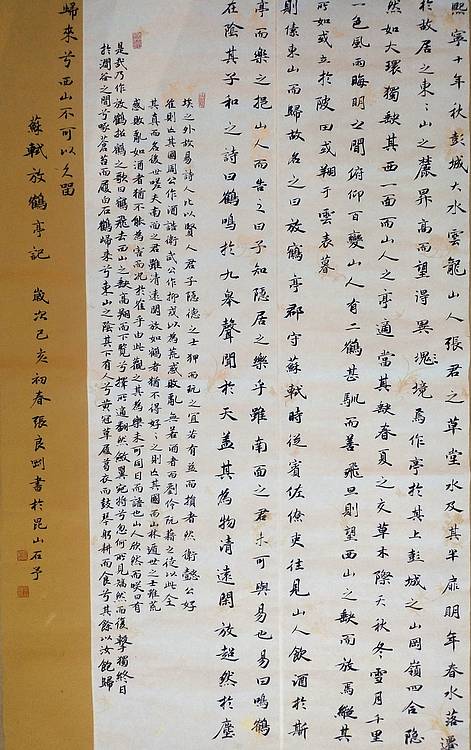 熙寧十年秋彭城大水雲龍山人張君之草堂水及其半扉明年春水落遷
於故居之東〻山之麓昇高而望得異塊境焉作亭於其上彭城之山岡嶺四合隱
然如大環獨缺其西一面而山人之亭適當其缺春夏之交草木際天秋冬雪月千里
一色風雨晦明之間俯仰百變山人有二鶴甚馴而善飛旦則望西山之缺而放焉縱其
所如或立於陂田或翔于雲表暮
則傃東山而歸故名之曰放鶴亭郡守蘇軾時從賓佐僚吏往見山人飲酒於斯
亭而樂之挹山人而告之曰子知隱居之樂乎雖南面之君未可與易也易曰鳴鶴
在陰其子和之詩曰鶴鳴於九皋聲聞於天蓋其為物清遠閑放超然於塵
埃之外故易詩人以比賢人君子隱德之士狎而玩之宜若有益而損者然衛懿公好
隺則亡其國周公作酒誥衛武公作抑戒以為荒惑敗亂無若酒者而劉伶阮籍之徒以此全
其真而名後世嗟夫南面之君雖清遠閑放如鶴者猶不得好〻之則亡其國而山林遁世之士雖荒
惑敗亂如酒者猶不能為害而況於隺乎由此觀之其為樂未可同日而語也山人欣然而笑曰有
是哉乃作放鶴招鶴之歌曰鶴飛去西山之缺高翔而下覽兮擇所適翻然斂翼宛將兮忽何所見矯然而復擊獨終日
於澗谷之間兮啄蒼苔而履白石鶴歸來兮東山之陰其下有人兮黃冠草屨葛衣而鼓琴躬耕而食兮其餘以汝飽歸
歸來兮西山不可以久留
蘇軾放鶴亭記 歲次己亥初春張良則書於昆山石予